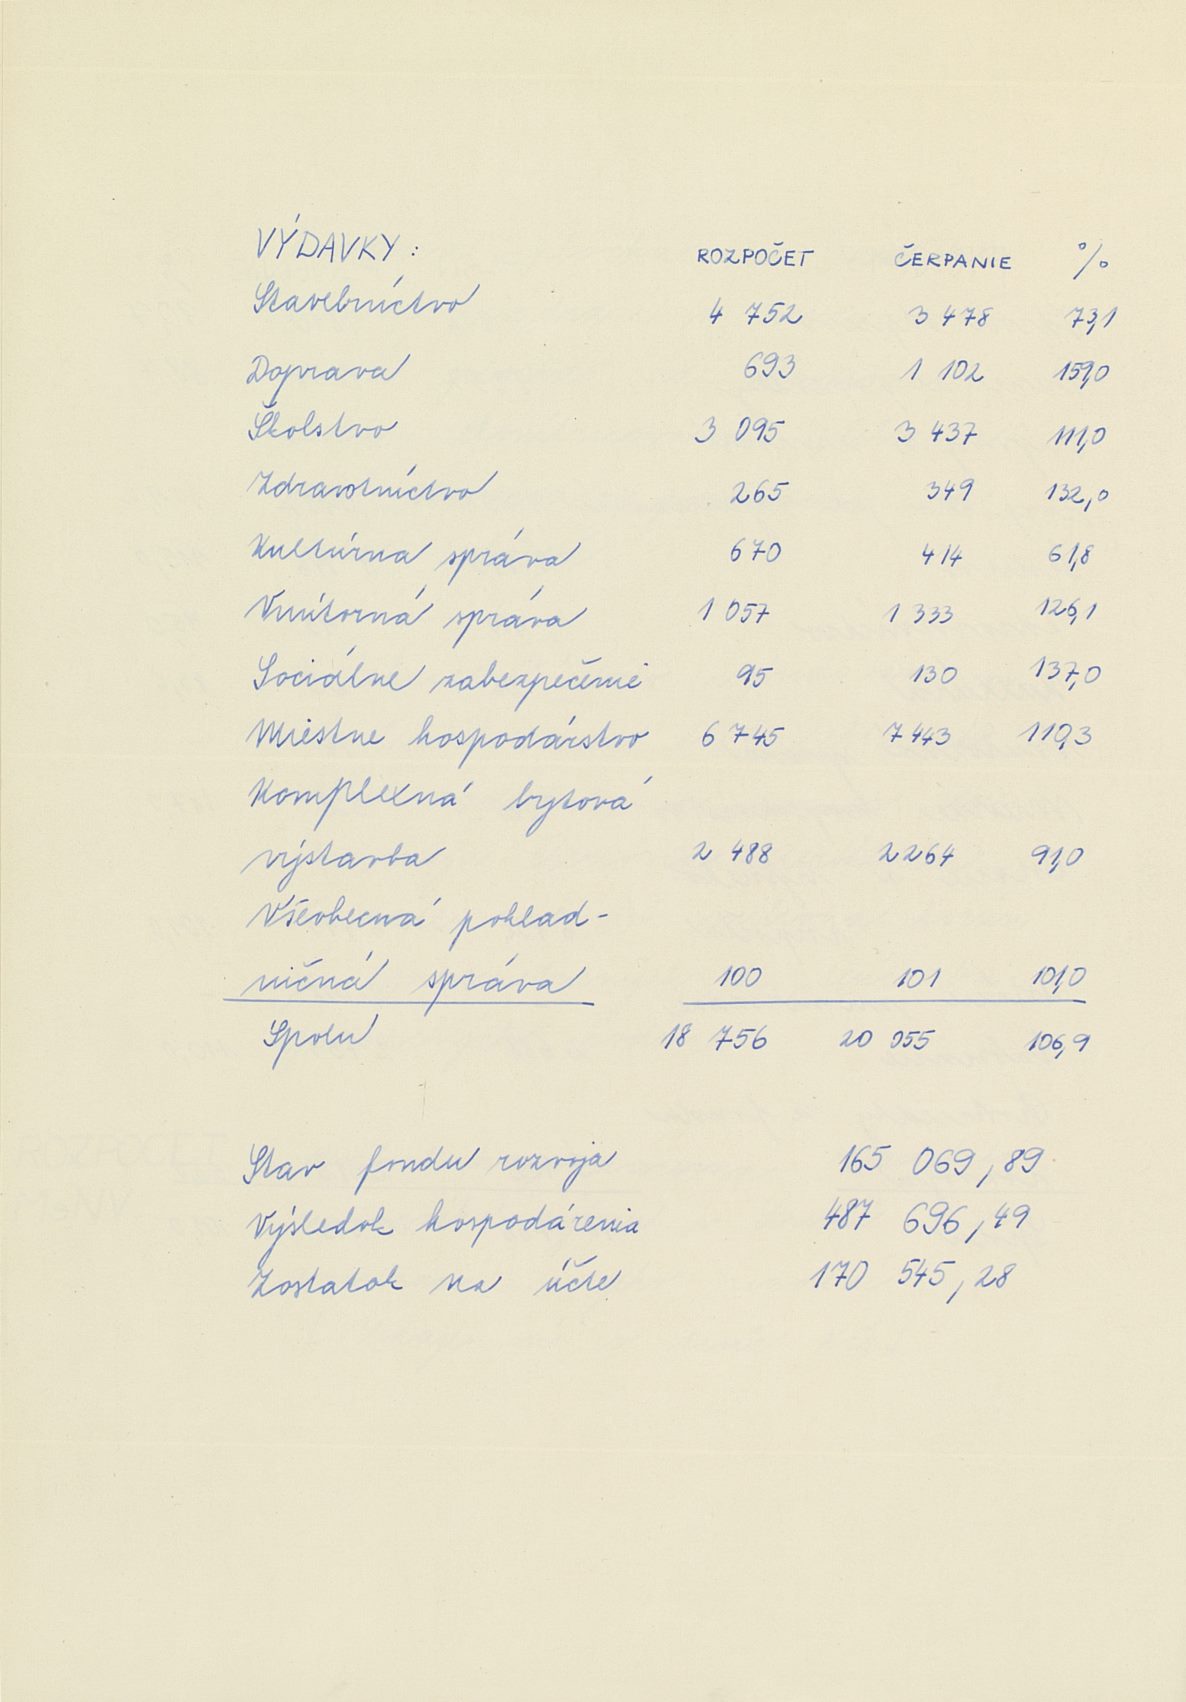 VÝDAVKY : ROZPOČET ČERPANIE %
Stavebníctvo 4 752 3 478 73,1
Doprava 693 1 102 159,0
Školstvo 3 095 3 437 111,0
Zdravotníctvo 265 349 132,0
Kultúrna správa 670 414 61,8
Vnútorná správa 1 057 1 333 126,1
Sociálne zabezpečenie 95 130 137,0
Miestne hospodárstvo 6 745 7 443 110,3
Komplexná bytová
výstavba 2 488 2264 91,0
Všeobecná poklad-
ničná správa 100 101 101,0
Spolu 18 756 20 055 106,9
Stav fondu rozvoja 165 069,89
Výsledok hospodárenia 487 696,49
Zostatok na účte 170 545,28